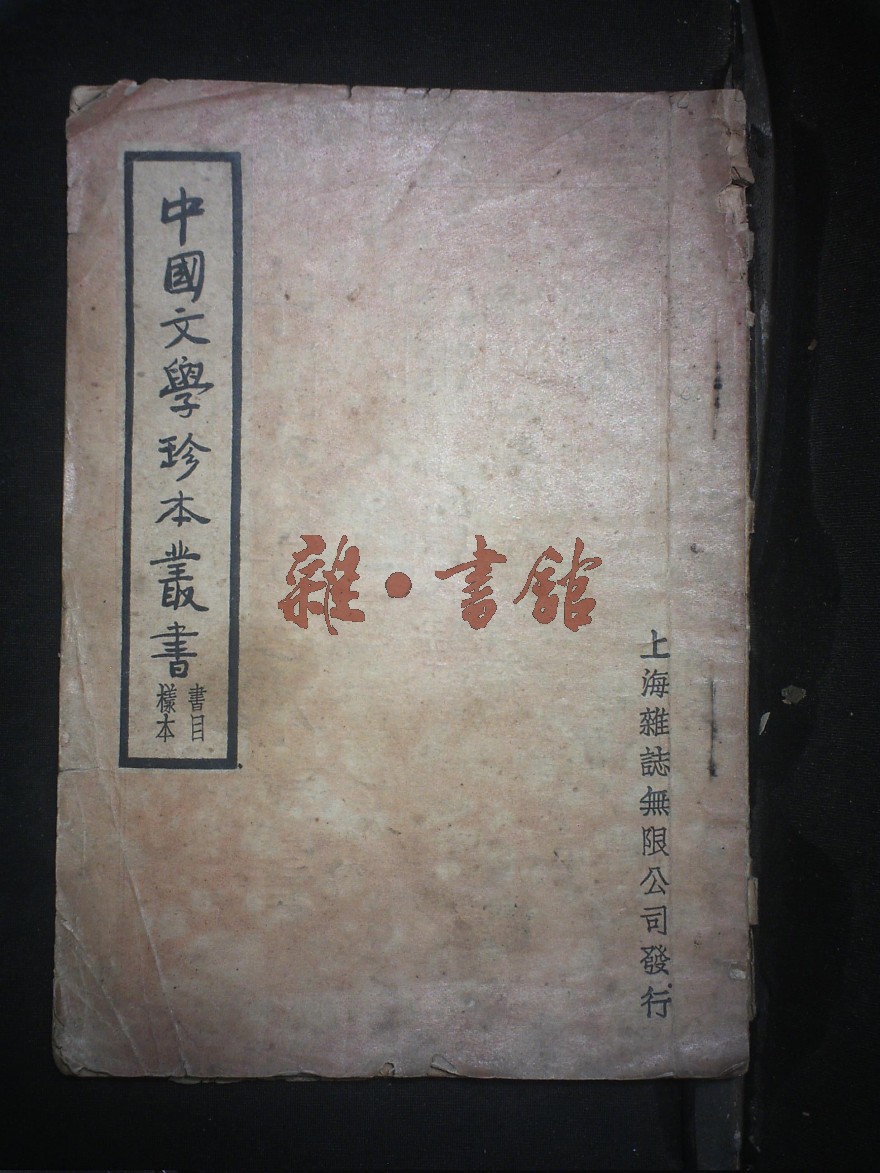 中國文學珍本叢書
書目
樣本
雜·書館
上海雜誌無限公司發行